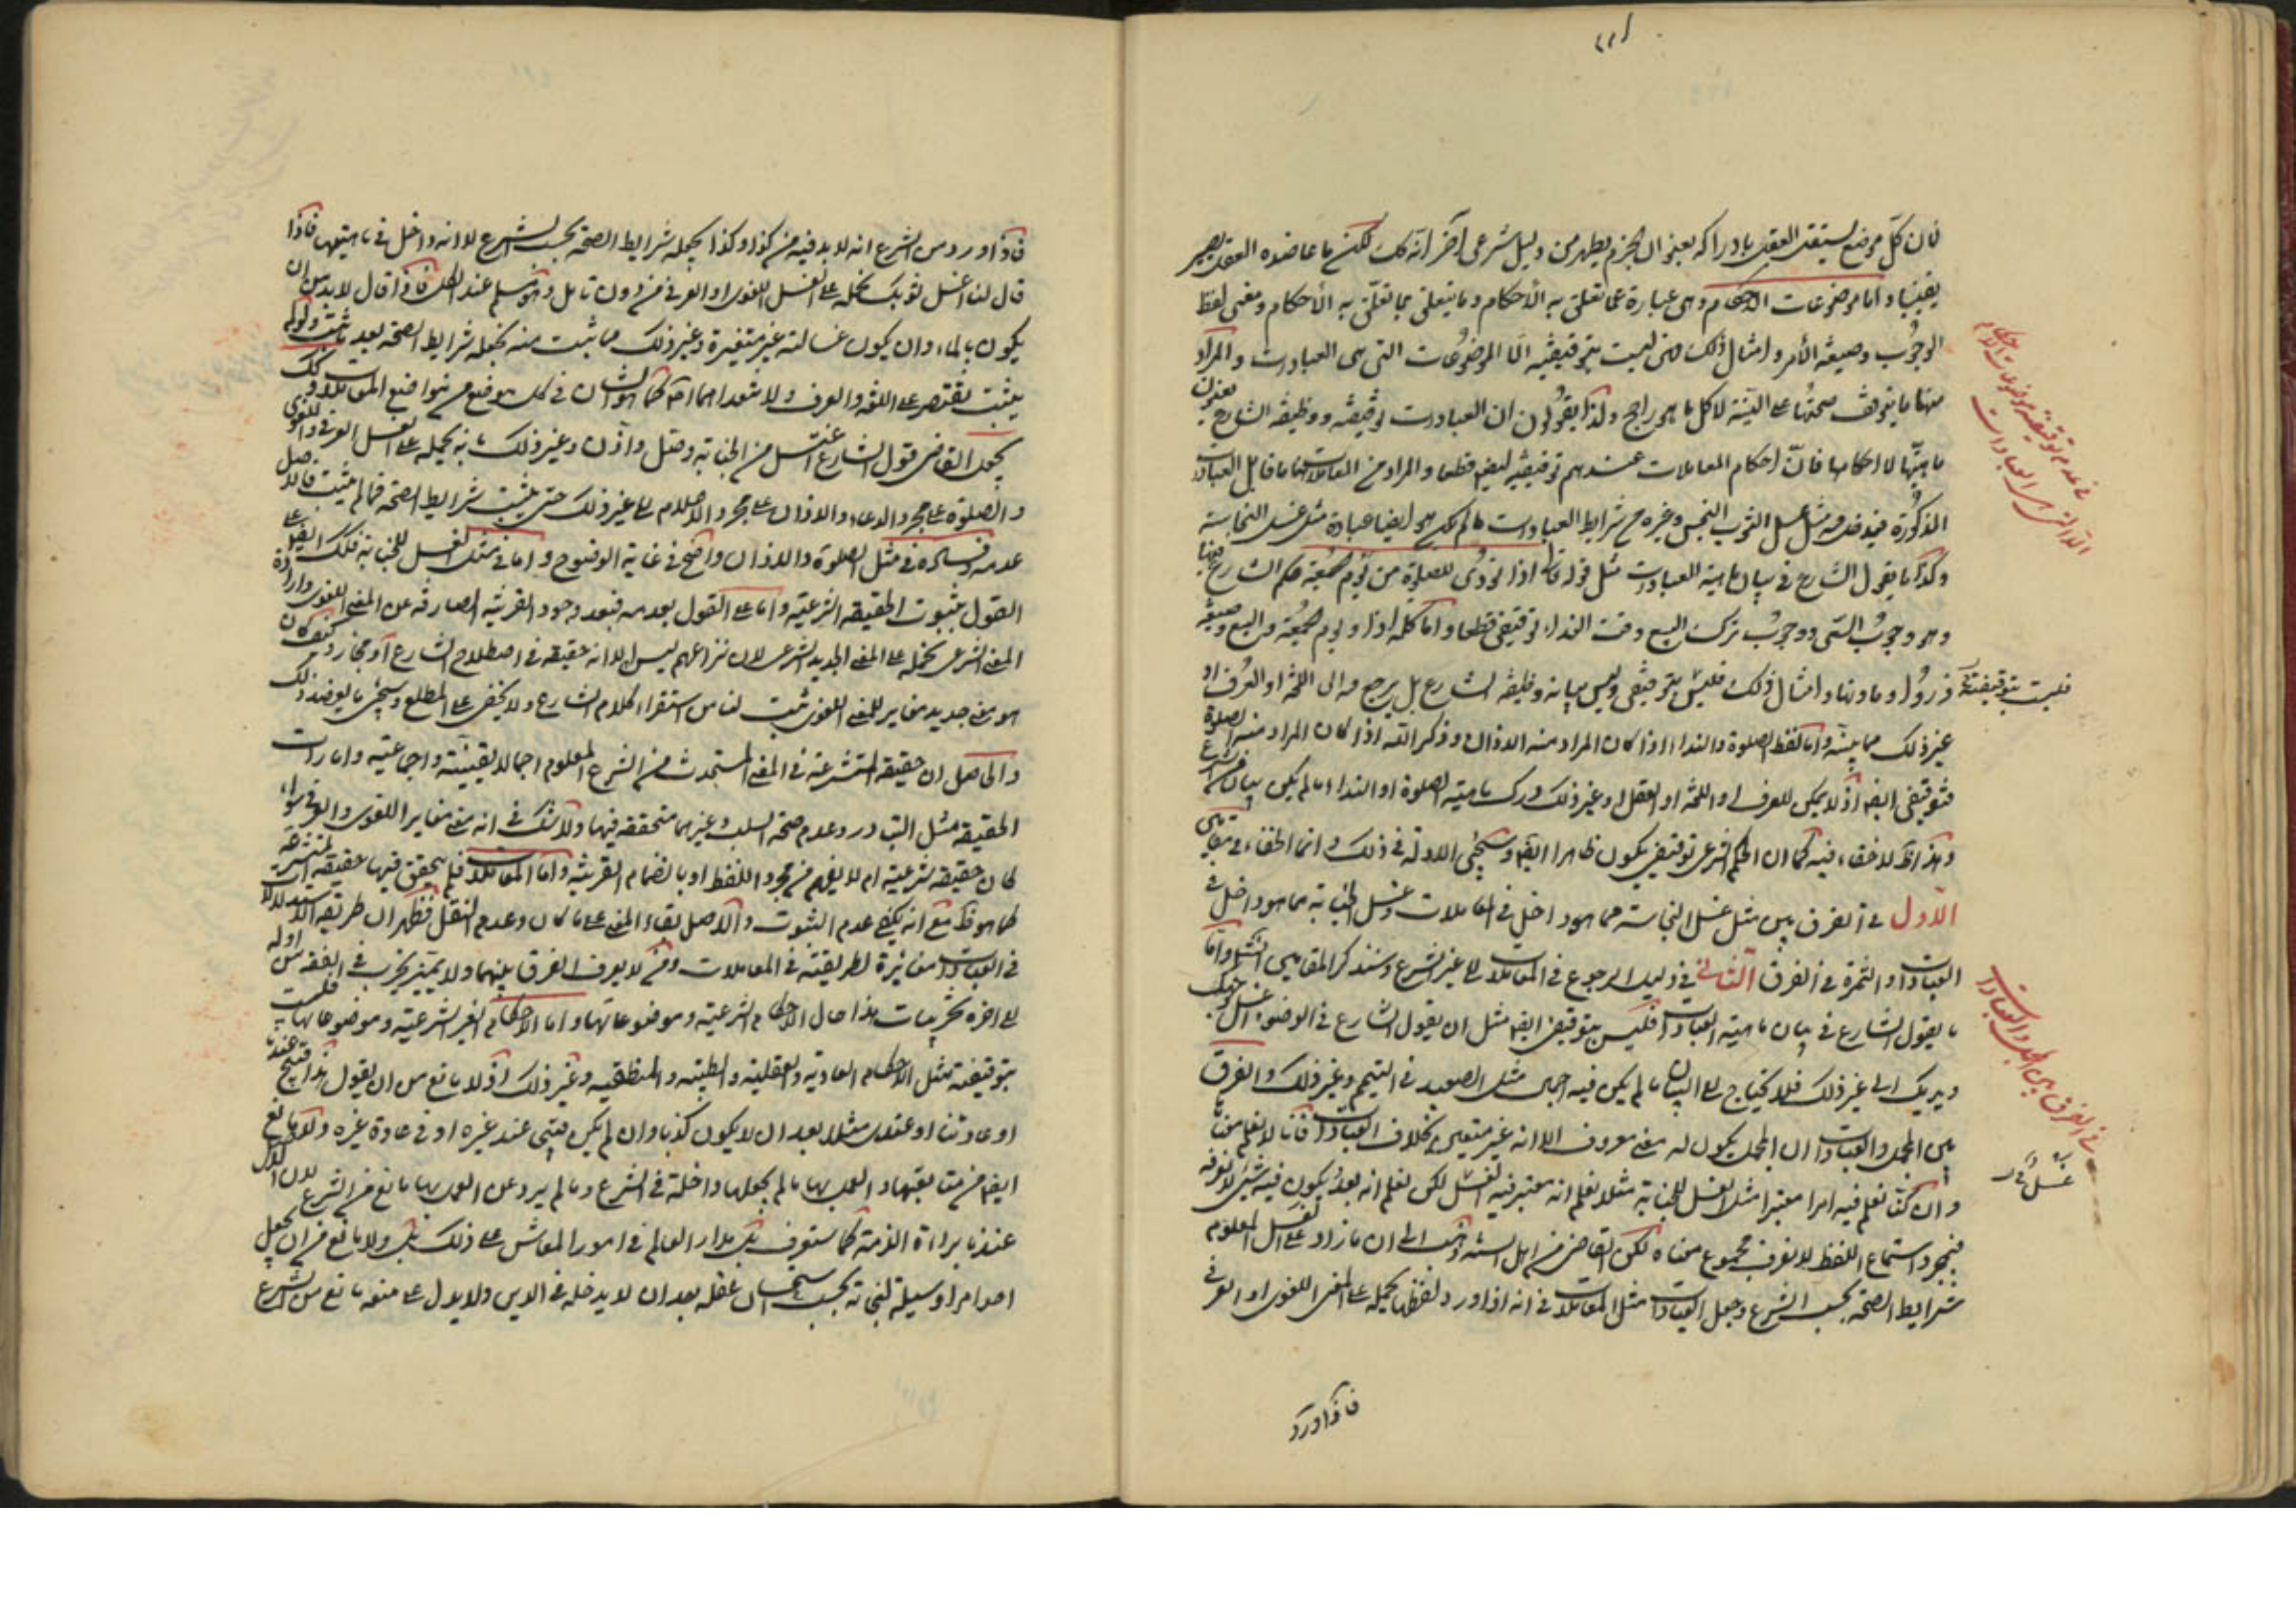 فان كل موضع يستقل العقل بادراكه بعنوان الجزم يظهر من دليل شرعي آخر انه كك لكن ما عاضده العقل يصير
يقينيا واما موضوعات الاحكام وهي عبارة عما تعلق به الأحكام وما يتعلق بما تعلق به الأحكام ومعنى لفظ
الوجوب وصيغة الأمر وامثال ذلك فهي ليست بتوقيفية الا الموضوعات التي هي العبادات والمراد
منها ما يتوقف صحتها على النية لا كل ما هو راجح ولذا يقولون ان العبادات توقيفية ووظيفة الشارع يعنون
ماهيتها لا احكامها فان احكام المعاملات عندهم توقيفية ايض قطعا والمراد من المعاملات هنا ما قابل العبادات
المذكورة فيدخل فيه مثل غسل الثوب النجس وغيره من شرايط العبادات ما لم يكن هو ايضا عبادة مثل غسل النجاسة
وكذا ما يقول الشارع في بيان ماهية العبادات مثل قوله تعالى اذا نودي للصلوة من يوم الجمعة فحكم الشارع هنا
وهو وجوب السعي ووجوب ترك البيع وقت النداء توقيفي قطعا واما كلمة اذا ويوم الجمعة والبيع وصيغة
ذروا وما دونها وامثال ذلك فليس بتوقيفي وليس بيانه وظيفة الشارع بل يرجع فيه الى اللغة او العرف او
فليست بتوقيفية
غير ذلك مما يبينه واما لفظ الصلوة والنداء اذا كان المراد منه الاذان وذكر الله اذا كان المراد منه الصلوة
فتوقيفي ايضا اذ لا يمكن للعرف او اللغة او العقل او غير ذلك درك ماهية الصلوة او النداء ما لم يكن بيان من الشرع
وهذا ظ لا خفاء فيه كما ان الحكم الشرعي توقيفي يكون ظاهرا ايضا وستجئ الادلة في ذلك وانما الخفاء في مقامين
الأول في الفرق بين مثل غسل النجاسة مما هو داخل في المعاملات وغسل الجنابة مما هو داخل في
العبادات والثمرة في الفرق الثاني في دليل الرجوع في المعاملات الى غير الشرع وسنذكر المقامين انش واما
ما يقول الشارع في بيان ماهية العبادات فليس بتوقيفي ايضا مثل ان يقول الشارع في الوضوء اغسل وجهك
ويديك الى غير ذلك فلا يحتاج الى البيان ما لم يكن فيه اجمال مثل الصعيد في التيمم وغير ذلك والفرق
بين المجمل والعبادات ان المجمل يكون له معنى معروف الا انه غير متعين بخلاف العبادات فانا لا نعلم معناها
وان كنا نعلم فيه امرا معتبرا مثل الغسل للجنابة مثلا نعلم انه معتبر فيه الغسل لكن نعلم انه بعد يكون فيه شئ لا نعرفه
فبمجرد استماع اللفظ لا نعرف مجموع معناه لكن القاضي من اهل السنة ذهب الى ان ما زاد على الغسل المعلوم
شرايط الصحة بحسب الشرع وجعل العبادات مثل المعاملات في انه اذا ورد لفظها يحمله على المعنى اللغوي او العرفي
فاذا ورد
في عدم توقيفية موضوعات الاحكام
الا التي هي العبادات
في الفرق بين المجمل والعبادات
فاذا ورد من الشرع انه لا بد فيه من كذا وكذا يجعله شرايط الصحة بحسب الشرع لا انه داخل في ماهيتها فاذا
قال لنا اغسل ثوبك نحمله على الغسل اللغوي او العرفي من دون تامل وهو مسلم عند الكل فاذا قال لا بد من ان
يكون بالماء وان يكون غسالته غير متغيرة وغير ذلك مما ثبت منه نجعله شرايط الصحة بعد ما ثبت ولو لم
يثبت نقتصر على اللغة والعرف ولا نتعداهما اصلا كما هو الشان في كل موضع من مواضع المعاملات كك
يجعل القاضي قول الشارع اغتسل من الجنابة وصل واذن وغير ذلك بانه يحمله على الغسل العرفي واللغوي
والصلوة على مجرد الدعاء والاذان على مجرد الاعلام الى غير ذلك حتى يثبت شرايط الصحة فما لم يثبت فالاصل
عدمه وفساده في مثل الصلوة والاذان واضح في غاية الوضوح واما في مثل الغسل للجنابة فكك ايضا على
القول بثبوت الحقيقة الشرعية واما على القول بعدمه فبعد وجود القرينة الصارفة عن المعنى اللغوي وارادة
المعنى الشرعي نحمله على المعنى الجديد الشرعي لان نزاعهم ليس الا انه حقيقة في اصطلاح الشارع او مجاز وكيف كان
هو معنى جديد مغاير للمعنى اللغوي ثبت لنا من استقراء كلام الشارع ولا يخفى على المطلع وسيجئ ما يعضد ذلك
والحاصل ان حقيقة المتشرعة في المعنى المستحدث من الشرع المعلوم اجمالا يقينية واجماعية وامارات
الحقيقة مثل التبادر وعدم صحة السلب وغيرهما متحققة فيها ولا شك في انه معنى مغاير للغوي والعرفي سواء
كان حقيقة شرعية ام لا يفهم من مجرد اللفظ او بانضمام القرينة واما المعاملات فلم يتحقق فيها حقيقة المتشرعة
كما هو ظ مع انه يكفي عدم الثبوت والاصل بقاء المعنى على ما كان وعدم النقل فظهر ان طريقة الاستدلال
في العبادات مغايرة لطريقته في المعاملات ومن لا يعرف الفرق بينهما ولا يتميز يخرب في الفقه من اوله
الى اخره تخريبات هذا حال الاحكام الشرعية وموضوعاتها واما الاحكام الغير الشرعية وموضوعاتها فليست
بتوقيفية مثل الاحكام العادية والعقلية والطبية والمنطقية وغير ذلك اذ لا مانع من ان يقول هذا قبيح عندنا
او عادتنا او عقلا مثلا بعد ان لا يكون كذبا وان لم يكن قبيحا عند غيره او في عادة غيره ولا مانع
ايضا من متابعتها والعمل بها ما لم يجعلها داخلة في الشرع وما لم يرد عن العمل بها مانع من الشرع لان الاصل
عندنا براءة الذمة كما ستعرف بل مدار العالم في امور المعاش على ذلك بل ولا مانع من ان يجعل
احد امرا وسيلة لنجاته بحسب استحسان عقله بعد ان لا يدخله في الدين ولا يدل على منعه مانع من الشرع